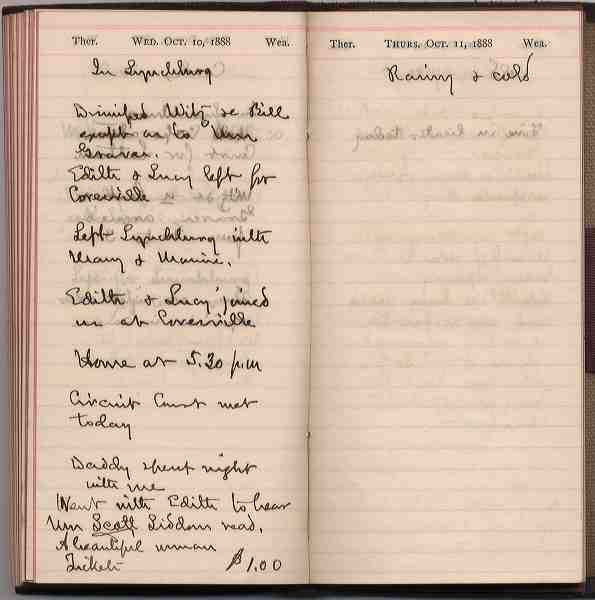 Ther. WED. OCT. 10, 1888 Wea.
In Lynchburg
Dismissed Witz &c Bill
except as to Wm
Graves.
Edith & Lucy left for
Covesville
Left Lynchburg with
Mary & Mamie.
Edith & Lucy joined
us at Covesville
Home at 5.30 p.m
Circuit Court met
today
Daddy spent night
with me
Went with Edith to hear
Mrs Scott Siddons read.
A beautiful woman
Tickets $1.00
Ther. THURS. OCT. 11, 1888 Wea.
Rainy & cold